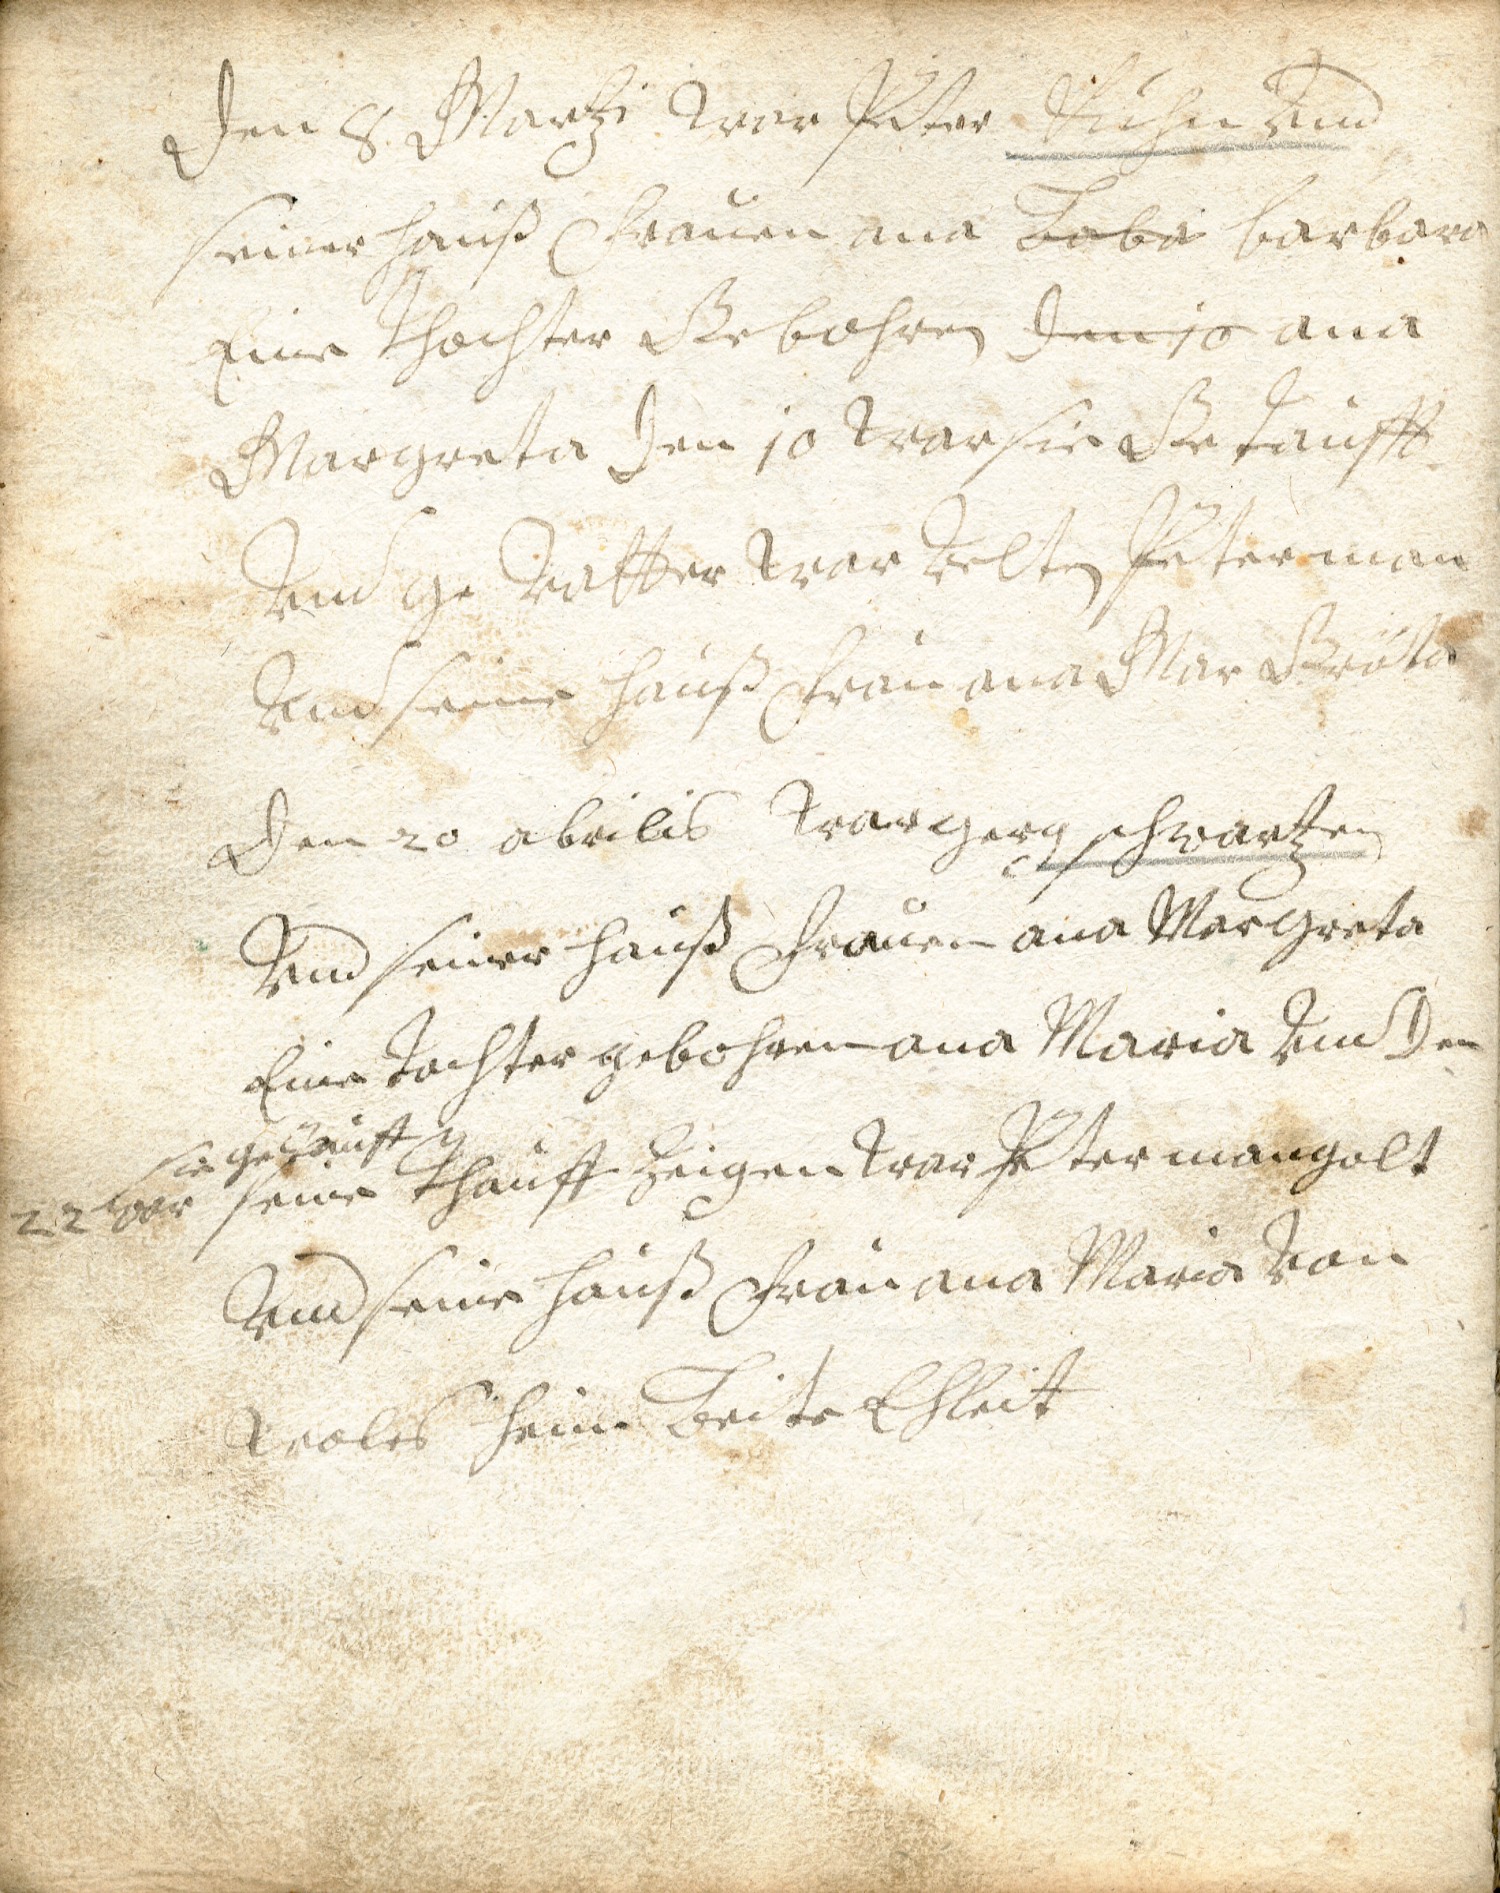 Den 8 Martzi war Peter Kuhn und
seiner hauß frauen ana Baba barbara
Eine Thochter Gebohren Den 10 ana
Margreta Den 10 war sie Getaufft
und ge vatter war velten Peterman
und seine hauß frau ana Mar Greta
Den 20 abrilis war gerg schwartzen
und seiner hauß frauen ana Margreta
Eine tochter gebohren ana Maria und Den
sie getauft
22 war seine Thauff Zeigen war Peter mangolt
und seine hauß frau ana Maria von
wolesheim Beite Ehleit